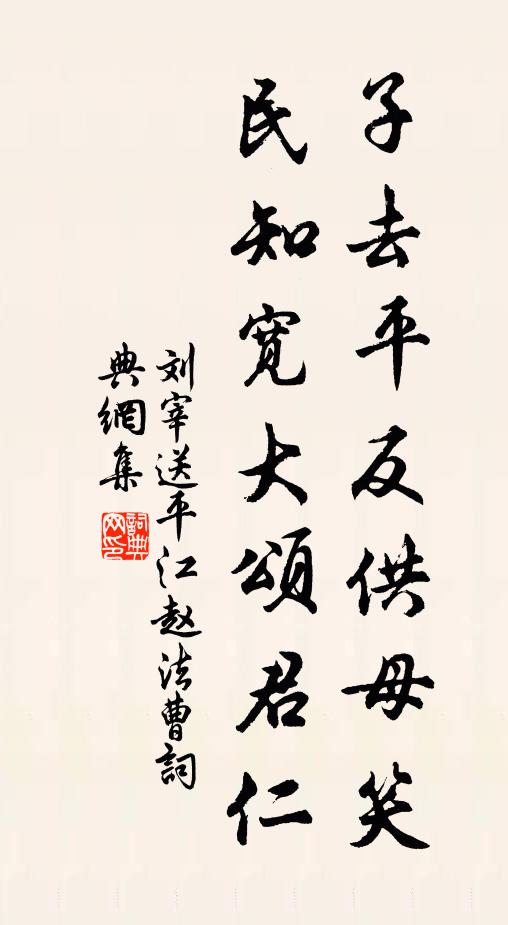 子去平反供母笑
民知宽大頌君仁
刘宰送平江赵法曹詞
典網集
詞典网印